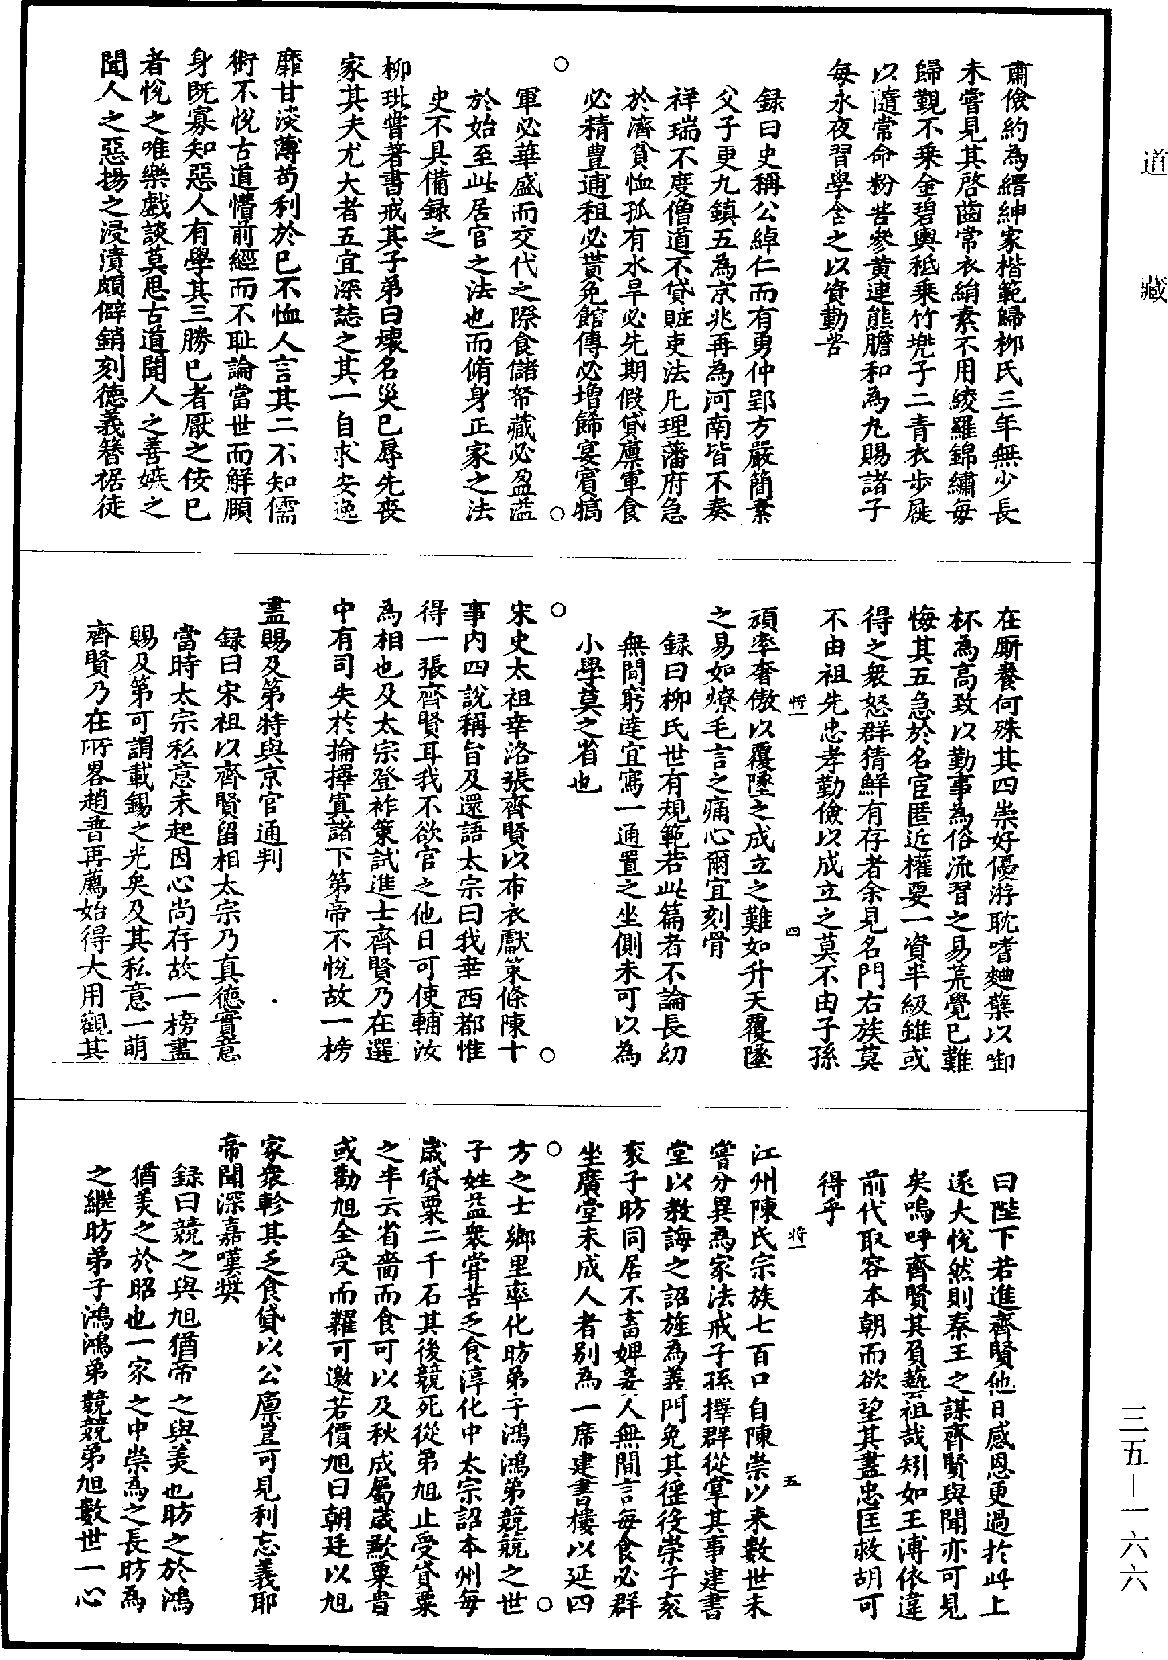 道藏
肅儉約為縉紳家楷範歸柳氏三年無少長
未嘗見其啓齒常衣絹素不用綾羅錦繡每
歸覲不乘金碧輿秪乘竹兜子二青衣步屣
以隨常命粉苦參黃連熊膽和為丸賜諸子
每永夜習學含之以資勤苦
録曰史稱公綽仁而有勇仲郢方嚴簡素
父子更九鎮五為京兆再為河南皆不奏
祥瑞不度僧道不貸贓吏法凡理藩府急
於濟貧恤孤有水旱必先期假貸廪軍食
必精豊逋租必貰免館傳必增飾宴賓犒
軍必華盛而交代之際食儲帑藏必盈溢
於始至此居官之法也而脩身正家之法
史不具備録之
柳玭嘗著書戒其子弟曰壞名災已辱先喪
家其失尤大者五宜深誌之其一自求安逸
靡甘淡薄苟利於已不恤人言其二不知儒
術不悅古道懵前經而不耻論當世而解頤
身既寡知惡人有學其三勝已者厭之佞已
者悅之唯樂戲談莫思古道聞人之善嫉之
聞人之惡揚之浸漬頗僻銷刻德義簪裾徒
在厮養何殊其四崇好優游耽嗜麯蘗以啣
杯為高致以勤事為俗流習之易荒覺已難
悔其五急於名宦匿近權要一資半級雖或
得之衆怒群猜鮮有存者余見名門右族莫
不由祖先忠孝勤儉以成立之莫不由子孫
頑率奢傲以覆墜之成立之難如升天覆墜
之易如燎毛言之痛心爾宜刻骨
録曰柳氏世有規範若此篇者不論長幼
無間窮達宜寫一通置之坐側未可以為
小學莫之省也
宋史太祖幸洛張齊賢以布衣獻策條陳十
事内四說稱旨及還語太宗曰我幸西都惟
得一張齊賢耳我不欲官之他日可使輔汝
為相也及太宗登祚策試進士齊賢乃在選
中有司失於掄擇寘諸下第帝不悅故一榜
盡賜及第特與京官通判
録曰宋祖以齊賢留相太宗乃真德實意
當時太宗私意未起因心尚存故一榜盡
賜及第可謂載錫之光矣及其私意一萌
齊賢乃在所畧趙普再薦始得大用觀其
曰陛下若進齊賢他日感恩更過於此上
遂大悅然則秦王之謀齊賢與聞亦可見
矣嗚呼齊賢其負藝祖哉矧如王溥依違
前代取容本朝而欲望其盡忠匡救胡可
得乎
江州陳氏宗族七百口自陳崇以來數世未
嘗分異為家法戒子孫擇群從掌其事建書
堂以教誨之詔旌為義門免其徭役崇子衮
衮子昉同居不畜婢妾人無間言每食必群
坐廣堂未成人者别為一席建書樓以延四
方之士鄉里率化昉弟子鴻鴻弟兢兢之世
子姓益衆嘗苦乏食淳化中太宗詔本州每
歲貸粟二千石其後兢死從弟旭止受貸粟
之半云省嗇而食可以及秋成屬歲歉粟貴
或勸旭全受而糶可邀若價旭曰朝廷以旭
家衆軫其乏食貸以公廪豈可見利忘義耶
帝聞深嘉嘆奬
録曰兢之與旭猶帝之與美也昉之於鴻
猶美之於昭也一家之中崇為之長昉為
之繼昉弟子鴻鴻弟兢兢弟旭數世一心
將一
四
將一
五
三五—一六六